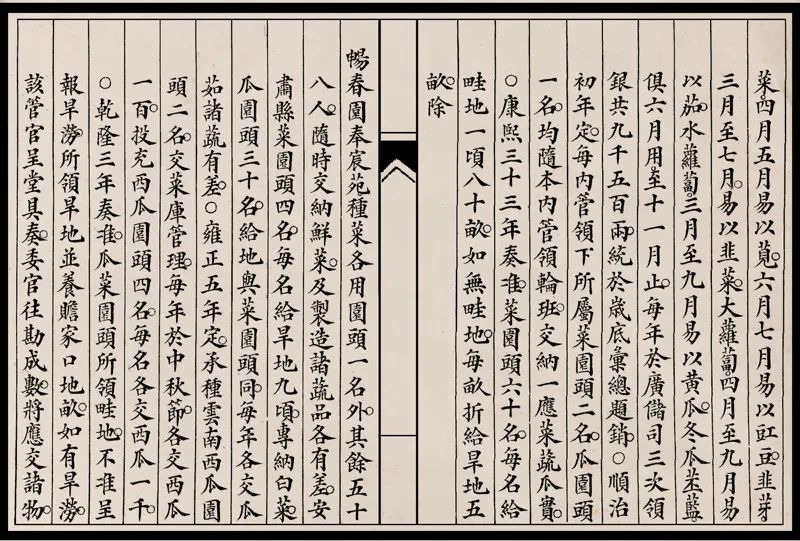 菜。四月五月易以莧。六月七月易以豇豆。韭芽
三月至七月。易以韭菜。大蘿蔔。四月至九月易
以茄。水蘿蔔。三月至九月易以黃瓜。冬瓜。苤藍。
俱六月用。至十一月止。每年於廣儲司三次領
銀共九千五百兩。統於歲底彙總題銷。○順治
初年定。每內管領下所屬菜園頭二名。瓜園頭
一名。均隨本內管領輪班。交納一應菜蔬瓜實。
○康熙三十三年奏准。菜園頭六十名。每名給
畦地一頃八十畝。如無畦地。每畝折給旱地五
畝。除
暢春園奉宸苑。種菜各用園頭一名外。其餘五十
八人。隨時交納鮮菜。及製造諸蔬品各有差。安
肅縣菜園頭四名。每名給旱地九頃。專納白菜。
瓜園頭三十名。給地與菜園頭同。每年各交瓜
茹諸蔬有差。○雍正五年定。承種雲南西瓜園
頭二名。交菜庫管理。每年於中秋節。各交西瓜
一百。投充西瓜園頭四名。每名各交西瓜一千。
○乾隆三年奏准。瓜菜園頭所領畦地。不准呈
報旱澇。所領旱地並養贍家口地畝。如有旱澇。
該管官呈堂具奏。委官往勘成數。將應交諸物。